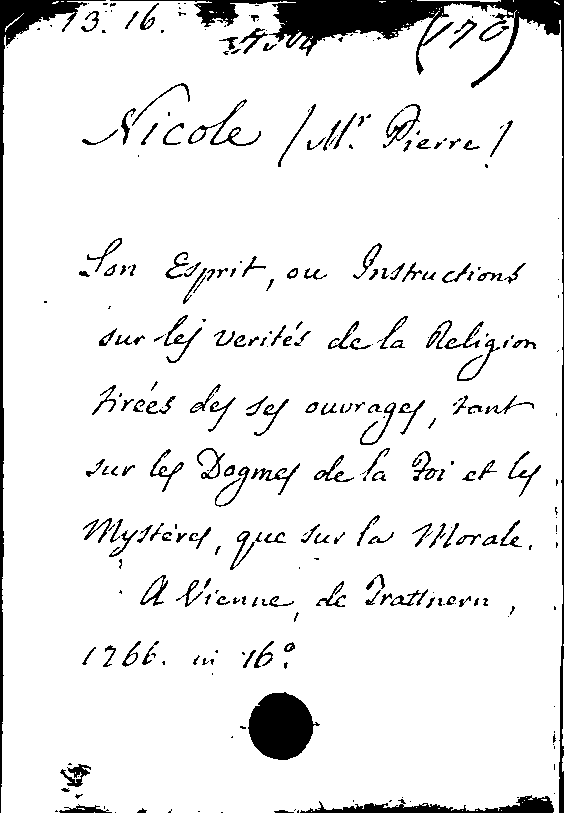 13. 16.
(170)
Nicole / Mr. Pierre /
Son Esprit, ou Instructions
sur les verités de la Religion
tirées des ses ouvrages, tant
sur les Dogmes de la Foi et les
Mystères, que sur la Morale.
A Vienne, de Trattnern,
1766. in 16º.